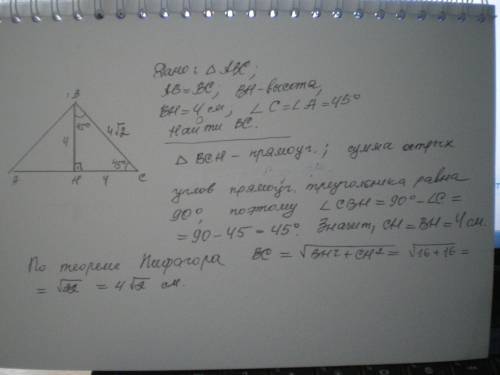 Дано: △ ABC;
AB=BC, BH-высота,
BH=4 см, ∠C=∠A=45°
Найти BC.
△ BCH - прямоуг.; сумма острых
углов прямоуг. треугольника равна
90°, поэтому ∠CBH=90°-∠C=
=90-45=45°. Значит, CH=BH=4 см.
По теореме Пифагора BC = √BH²+CH² = √16+16 =
= √32 = 4√2 см.
B
45°
4√2
4
45°
A
H
4
C